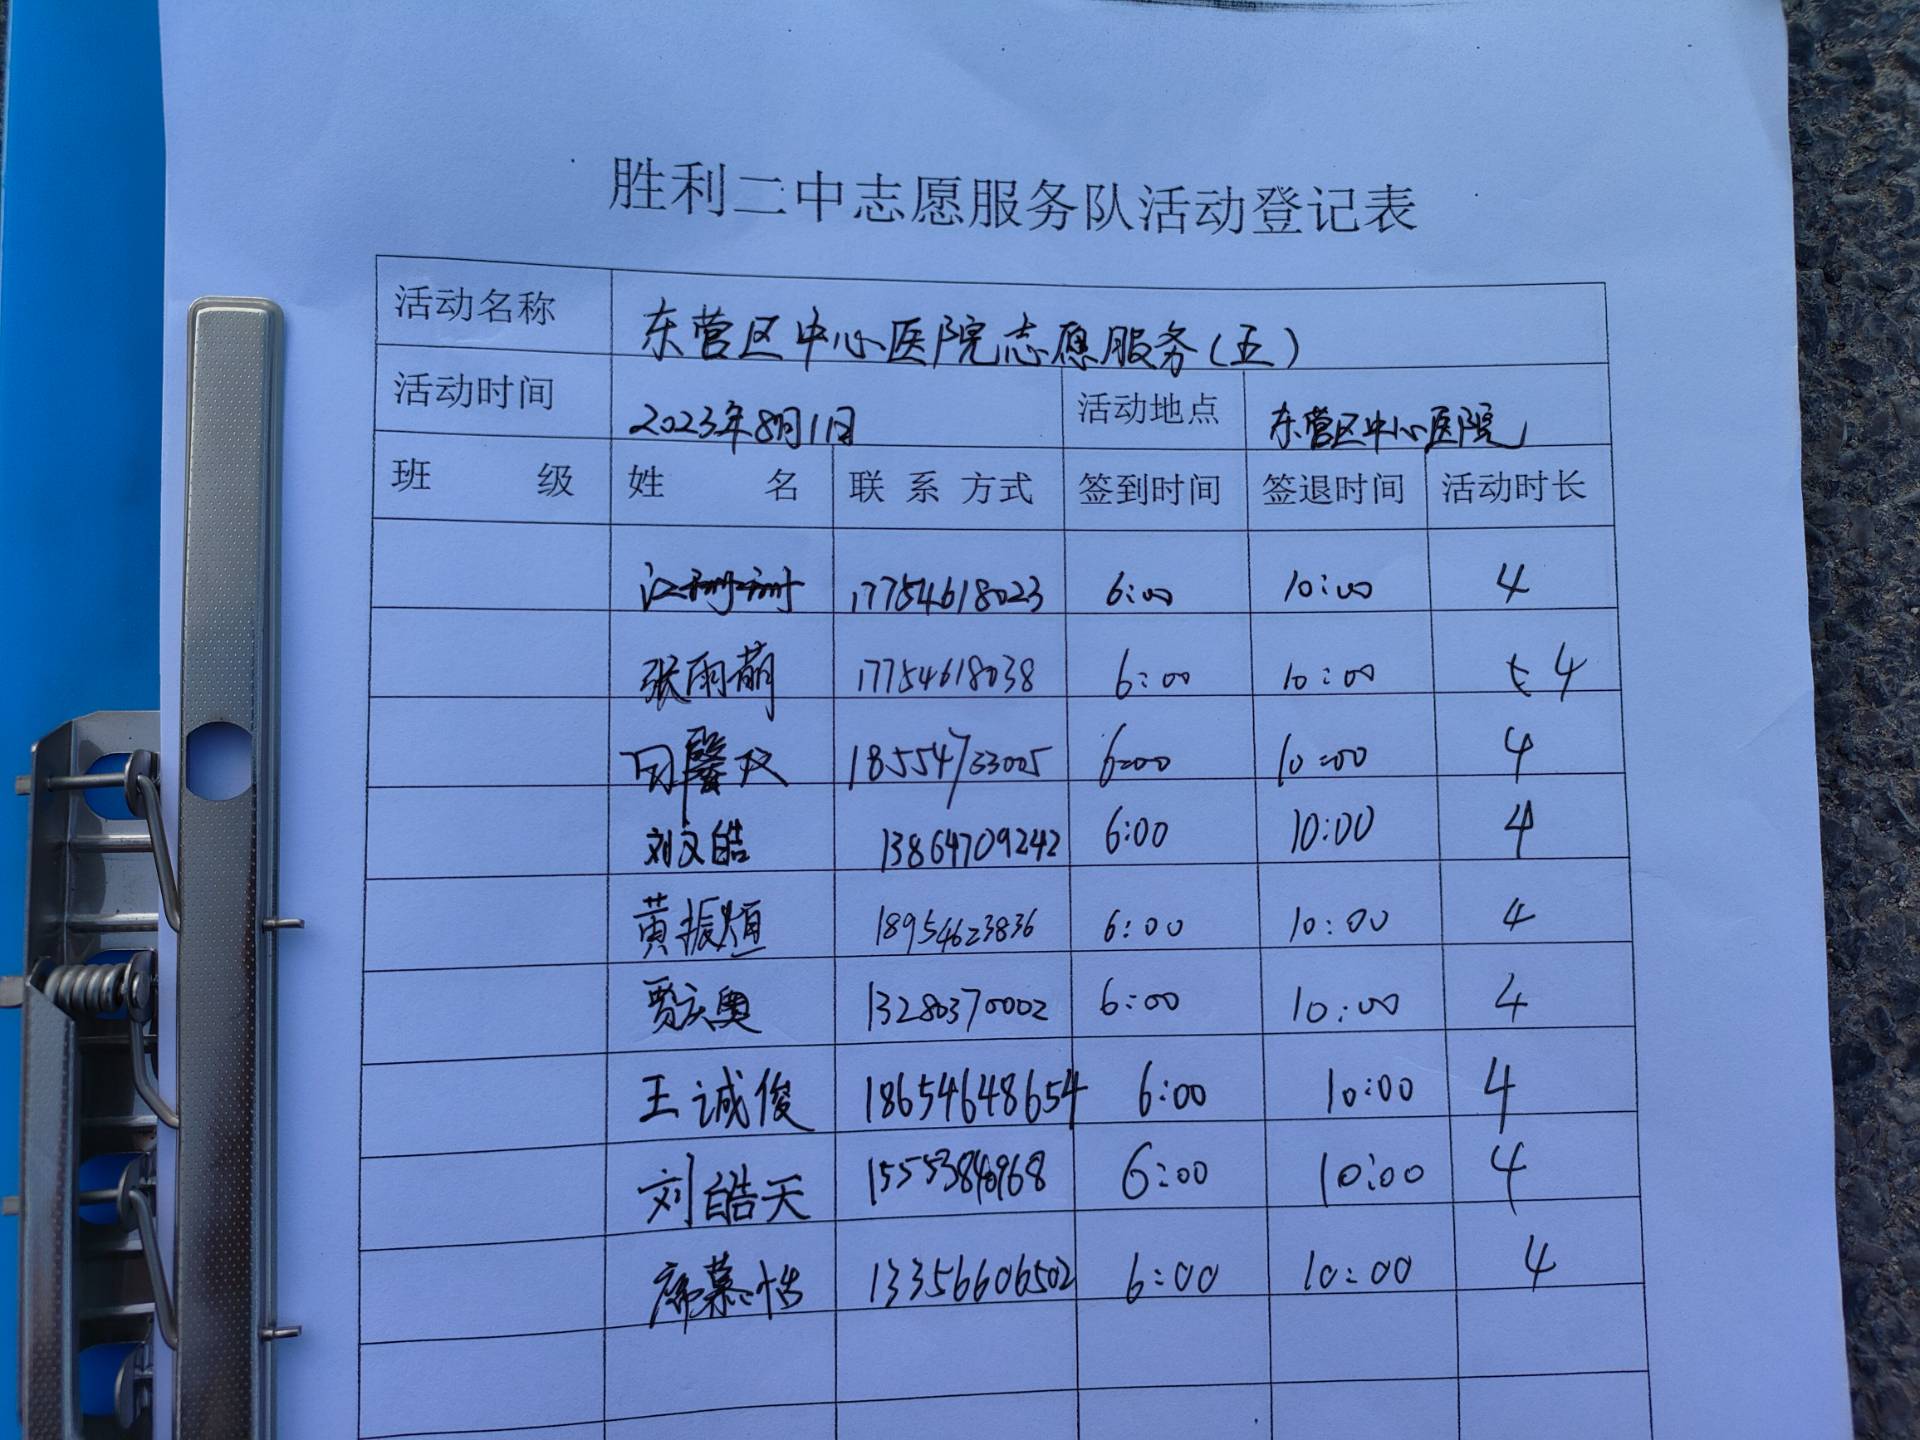 胜利二中志愿服务队活动登记表
活动名称 东营区中心医院志愿服务(五)
活动时间 2023年8月1日 活动地点 东营区中心医院
班 级 姓 名 联系方式 签到时间 签退时间 活动时长
江珊珊 17754618023 6:00 10:00 4
张雨萌 17754618038 6:00 10:00 4
馨 18554733005 6:00 10:00 4
刘文皓 13864709242 6:00 10:00 4
黄振烜 18954623836 6:00 10:00 4
贾庆奥 13280370002 6:00 10:00 4
王诚俊 18654648654 6:00 10:00 4
刘皓天 6:00 10:00 4
席慕恬 13356606502 6:00 10:00 4